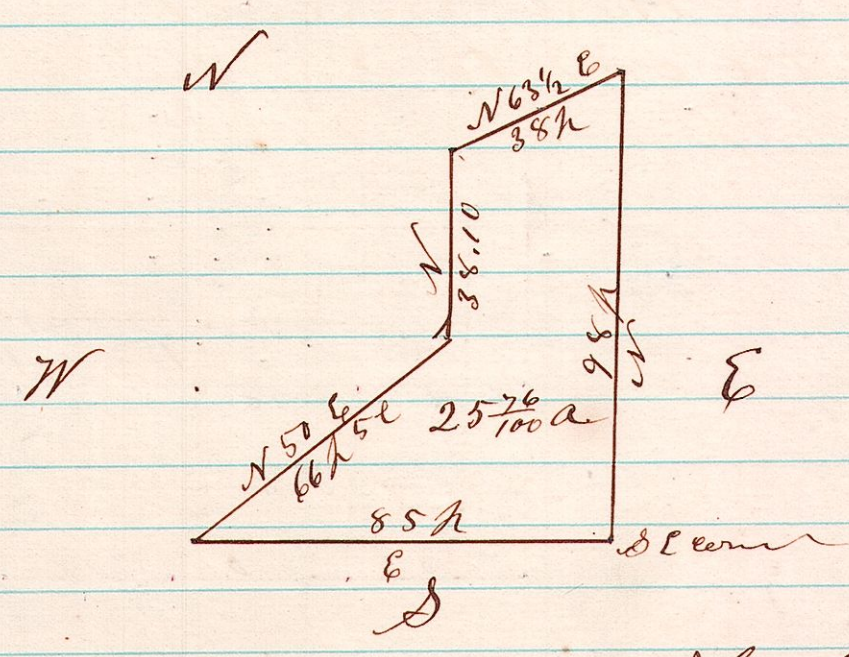 N
N 63½ E
38 p
N
38.10
98 p
N
W
E
N 50 E
66 p 5 l
25 76/100 a
85 p
E
S E corner
S